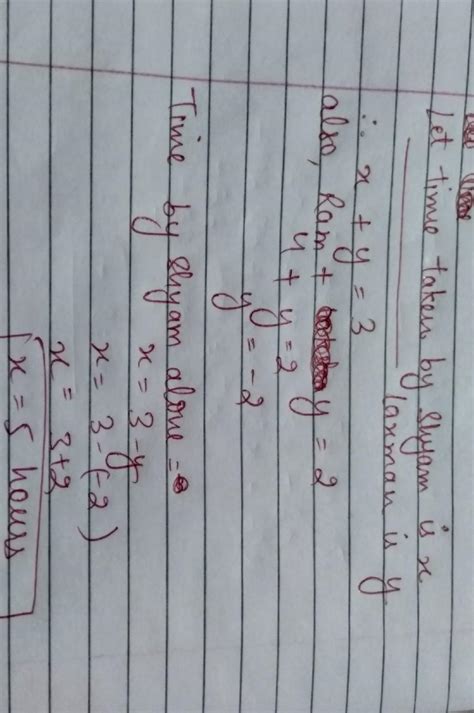 Let time taken by Shyam is x
Laxman is y
∴ x + y = 3
also, Ram + y = 2
4 + y = 2
y = -2
Time by Shyam alone =
x = 3 - y
x = 3 - (-2)
x = 3+2
x = 5 hours